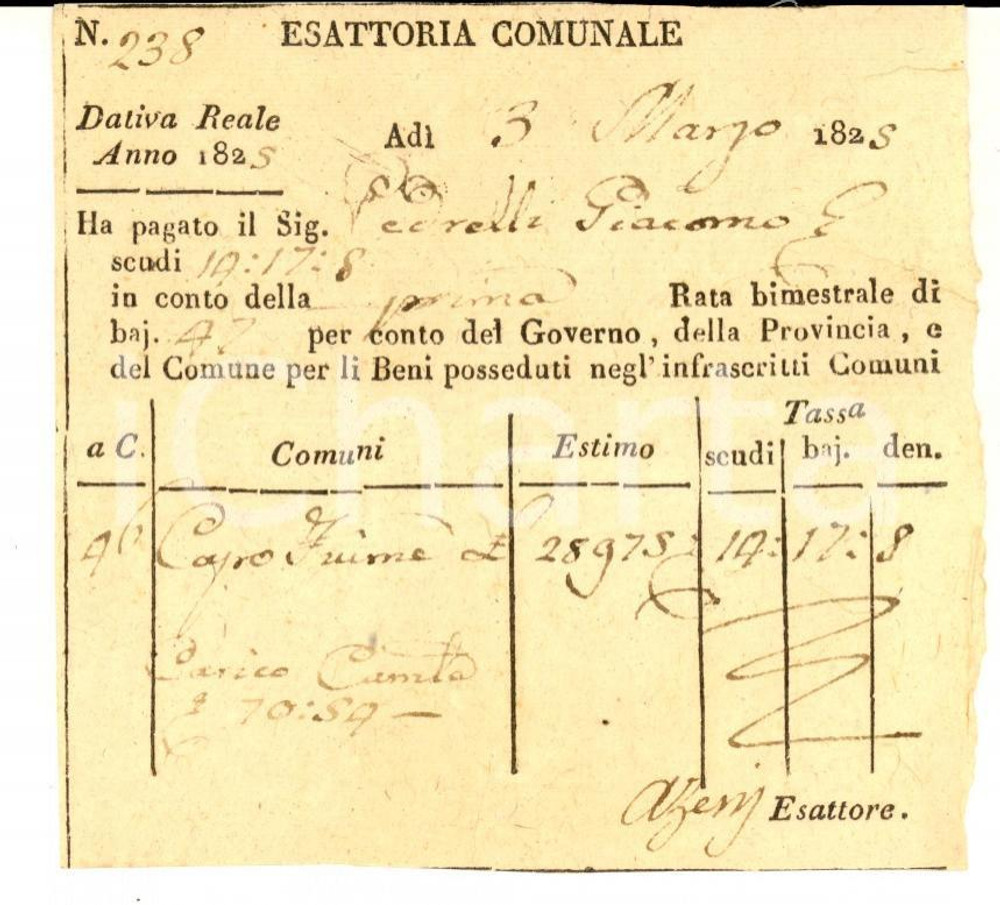 N. 238 ESATTORIA COMUNALE
Dativa Reale
Anno 1825
Adì 3 Marzo 1825
Ha pagato il Sig. Pedrelli Giacomo
scudi 14:17:8
in conto della prima Rata bimestrale di
baj. 47 per conto del Governo, della Provincia, e
del Comune per li Beni posseduti negl' infrascritti Comuni
Tassa
a C. Comuni Estimo scudi baj. den.
Capo Fiume 28975 14: 17: 8
Carico
70:54 —
Esattore.
iCharta